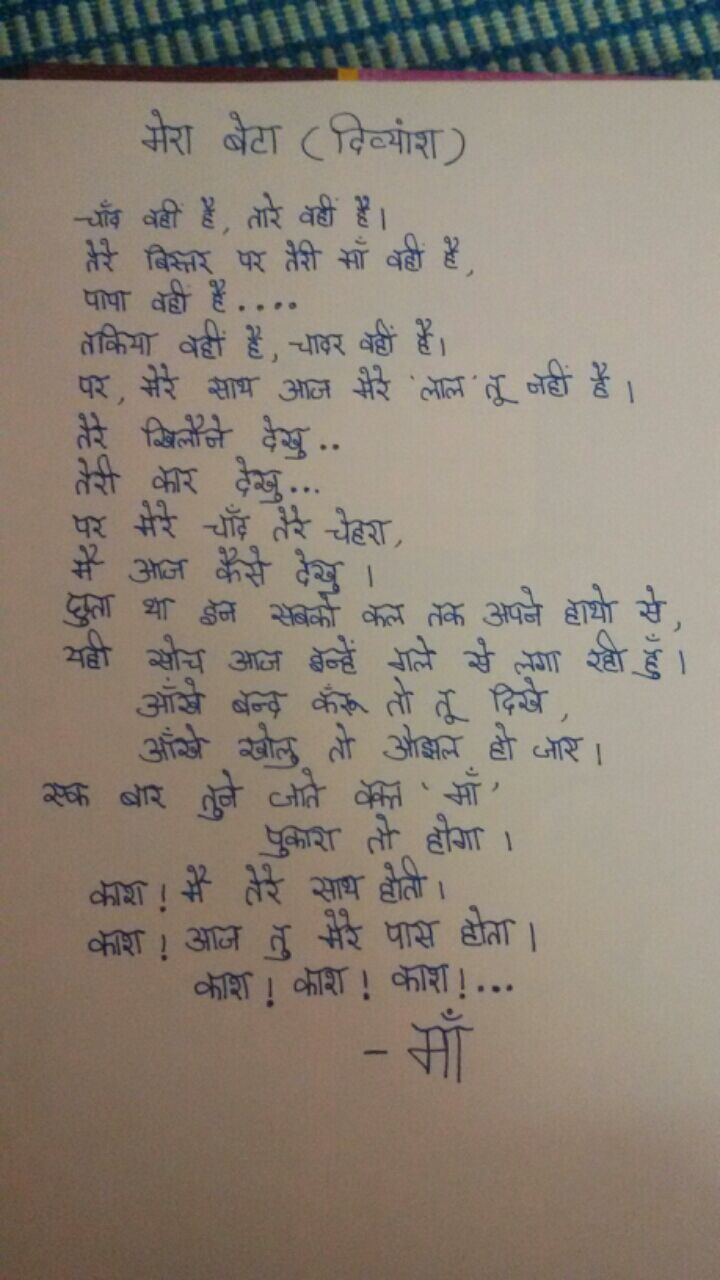 मेरा बेटा (दिव्यांश)
चाँद वहीं है, तारे वहीं है।
तेरे बिस्तर पर तेरी माँ वहीं है,
पापा वहीं है....
तकिया वहीं है, चादर वहीं है।
पर, मेरे साथ आज मेरे 'लाल' तू नहीं है।
तेरे खिलौने देखु..
तेरी कार देखु...
पर मेरे चाँद तेरे चेहरा,
मै आज कैसे देखु।
छुता था इन सबको कल तक अपने हाथो से,
यही सोच आज इन्हें गले से लगा रही हुँ।
आँखे बन्द करूँ तो तू दिखे,
आँखे खोलु तो ओझल हो जाए।
एक बार तुने जाते वक्त 'माँ'
पुकारा तो होगा।
काश! मै तेरे साथ होती।
काश! आज तु मेरे पास होता।
काश! काश! काश!...
- माँ